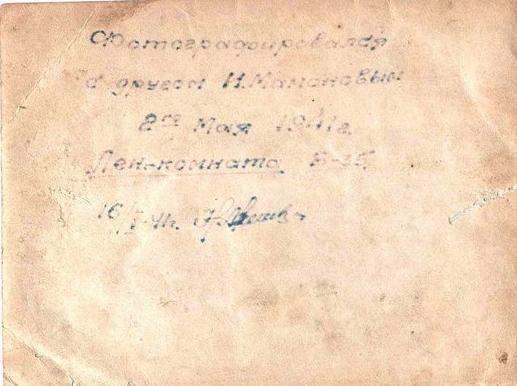 Фотографировался
с другом И. Мамоновым
2го Мая 1941г.
Лен-комната Б-35
16/